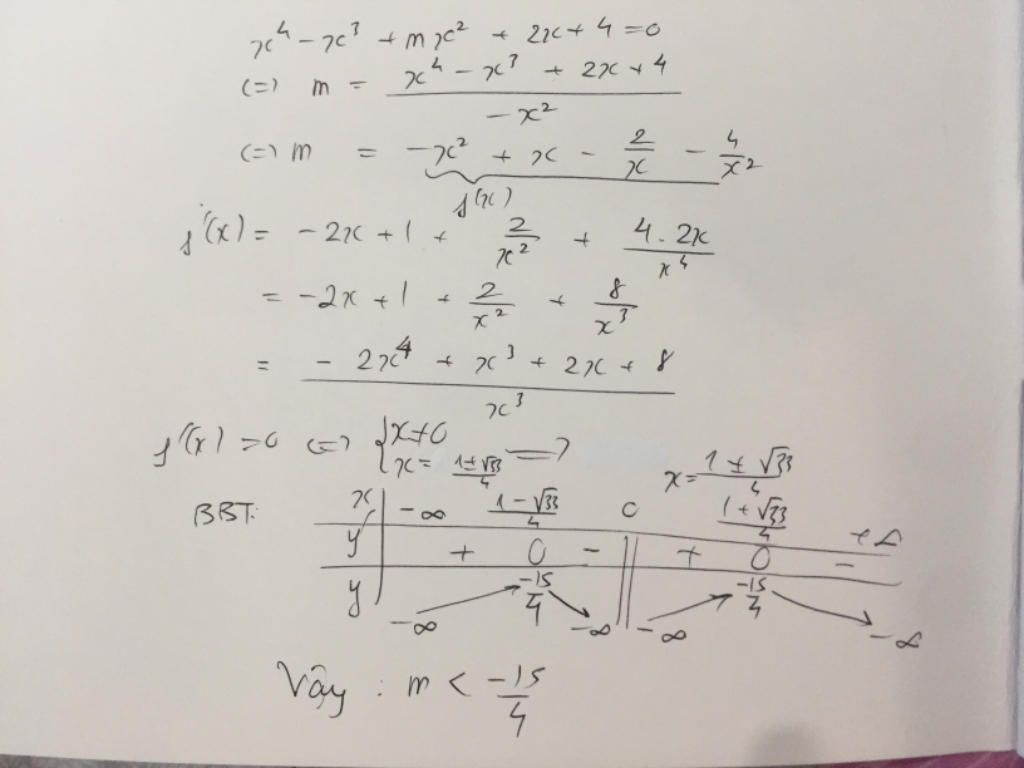 x⁴ - x³ + mx² + 2x + 4 = 0
<=> m = (x⁴ - x³ + 2x + 4) / (-x²)
<=> m = -x² + x - 2/x - 4/x²
f(x)
f'(x) = -2x + 1 + 2/x² + (4.2x)/x⁴
= -2x + 1 + 2/x² + 8/x³
= (-2x⁴ + x³ + 2x + 8) / x³
f'(x) = 0 <=> { x ≠ 0 ; x = (1 ± √33)/4 => x = (1 ± √33)/4
BBT: x | -∞ (1 - √33)/4 0 (1 + √33)/4 +∞
y' | + 0 - || + 0 -
y | -∞ ↗ -15/4 ↘ -∞ || -∞ ↗ -15/4 ↘ -∞
Vậy : m < -15/4